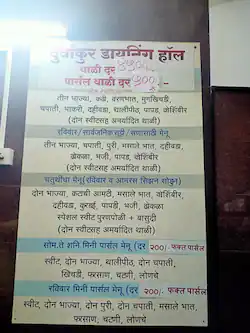 पुर्वांकुर डायनिंग हॉल
थाळी दर
पार्सल थाळी दर
तीन भाज्या, कढी, वरणभात, मुगखिचडी,
चपाती, भाकरी, दहीवडा, थालीपीठ, पापड, कोशिंबीर
(दोन स्वीटसह अमर्यादित थाळी)
रविवार/सार्वजनिकसुट्टी/सणासाठी मेनू
तीन भाज्या, चपाती, पुरी, मसाले भात, दहीवडा,
ढोकळा, भजी, पापड, कोशिंबीर
(दोन स्वीटसह अमर्यादित थाळी)
चतुर्थीचा मेनू(रविवार व आमरस सिझन सोडून)
दोन भाज्या, बटाची आमटी, मसाले भात, कोशिंबीर,
दहीवडा, कुरडई, पापडी, भजी, ढोकळा
स्पेशल स्वीट पुरणपोळी + बासुंदी
(दोन स्वीटसह अमर्यादित थाळी)
सोम.ते शनि मिनी पार्सल मेनू (दर २००/- फक्त पार्सल
स्वीट, दोन भाज्या, थालीपीठ, दोन चपाती,
खिचडी, फरसाण, चटणी, लोणचे
रविवार मिनी पार्सल मेनू (दर २००/- फक्त पार्सल
स्वीट, दोन भाज्या, दोन पुरी, दोन चपाती, मसाले भात,
फरसाण, चटणी, लोणचे